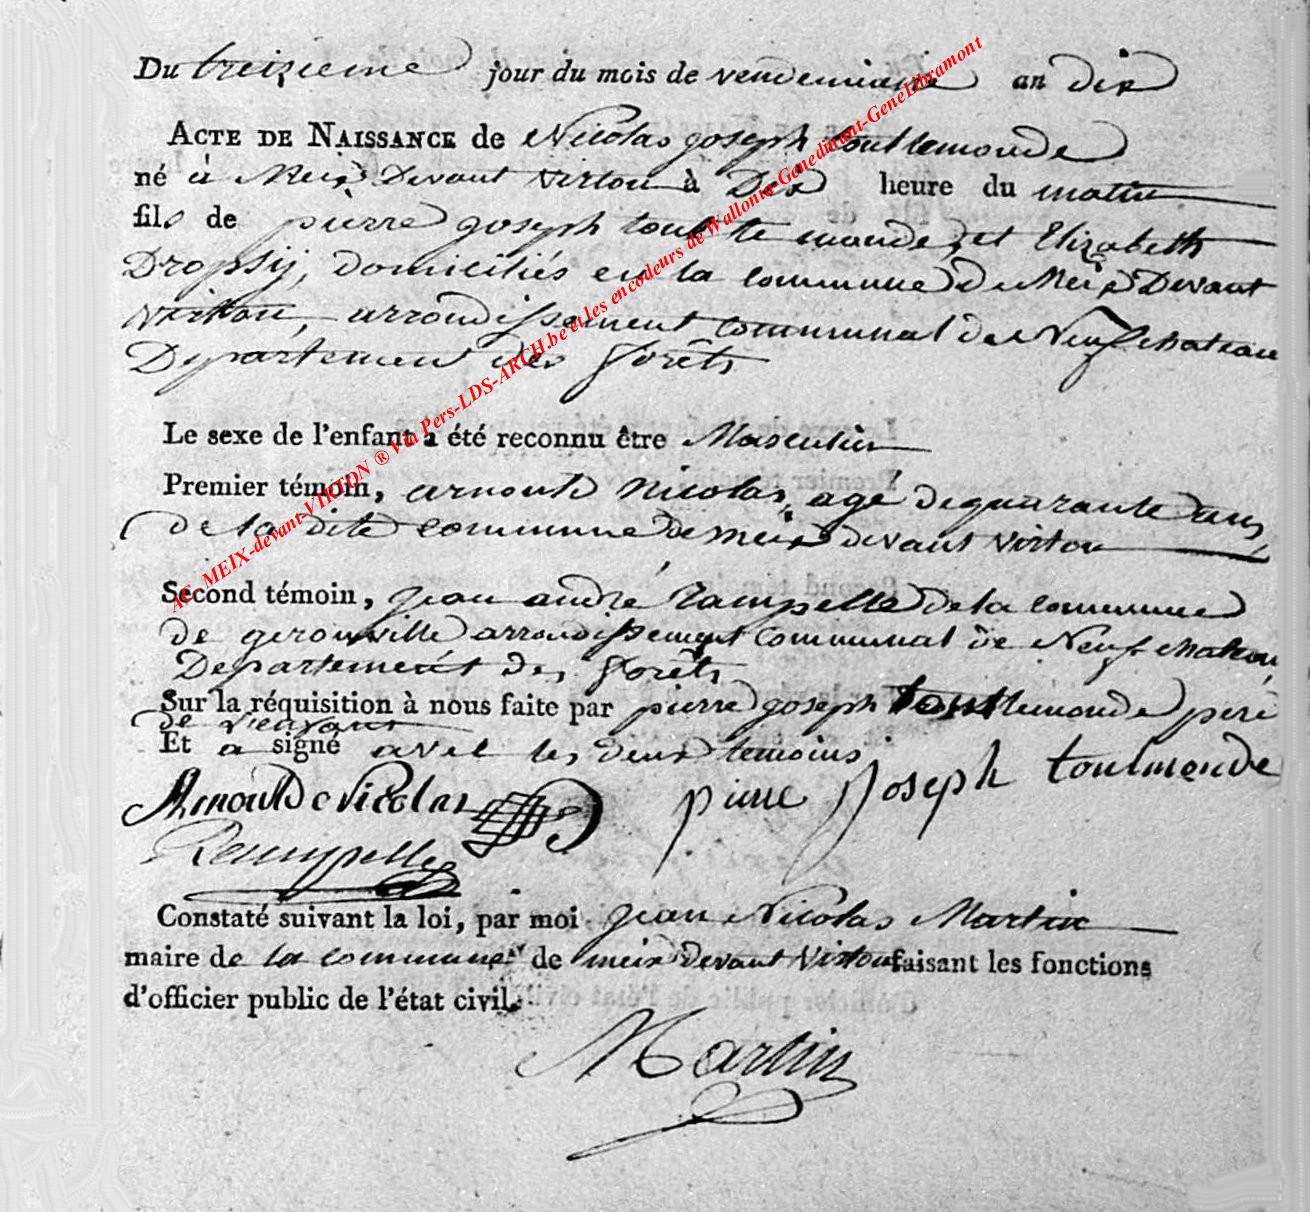 Du treizieme jour du mois de vendemiaire an dix
ACTE DE NAISSANCE de Nicolas joseph toutlemonde
né à Meix Devant virton à Dix heure du matin
fils de pierre joseph tout le monde, et Elizabeth
Dropsij, domiciliés en la commune de Meix Devant
virton, arrondissement communal de Neufchateau
Departement des forêts
Le sexe de l'enfant a été reconnu être Masculin
Premier témoin, arnould Nicolas, agé de quarante ans,
de la dite commune de meix devant virton
Second témoin, jean andré rampelle de la commune
de gerouville arrondissement communal de Neufchateau,
Departement des forêts
Sur la réquisition à nous faite par pierre joseph toutlemonde pere
de l'enfant
Et a signé avec les deux temoins
Arnould Nicolas pierre joseph toulmonde
Rempelle
Constaté suivant la loi, par moi jean Nicolas Martin
maire de la commune de meix devant virton faisant les fonctions
d'officier public de l'état civil.
Martin
AC MEIX-devant-VIRTON ® Via Pers-LDS-ARCH.be et les encodeurs de Wallonie-Genedinant-GeneLibramont